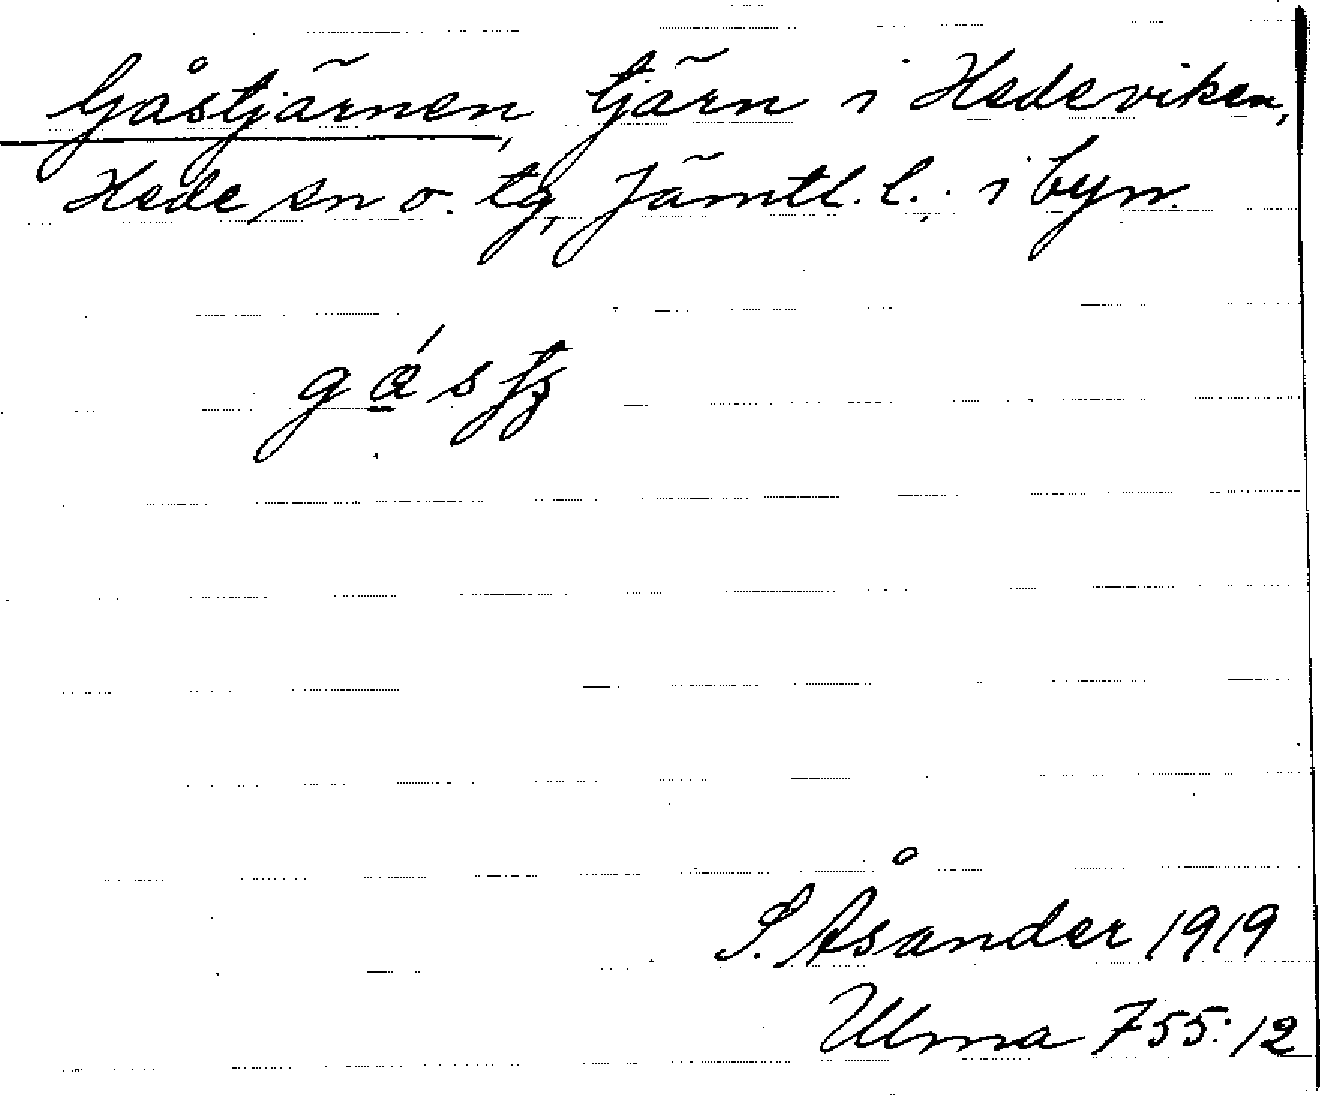 Gåstjärnen, tjärn i Hedeviken,
Hede sn o. tg, Jämtl. l. i byn.
S. Åsander 1919
Ulma 755:12